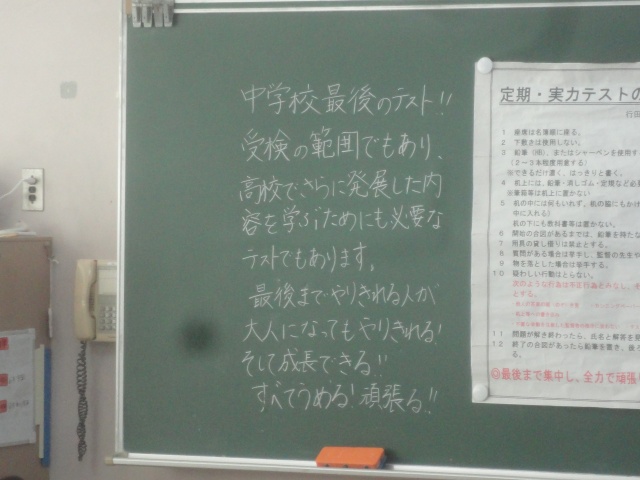 中学校最後のテスト!!
受検の範囲でもあり、
高校でさらに発展した内
容を学ぶためにも必要な
テストでもあります。
最後までやりきれる人が
大人になってもやりきれる!
そして成長できる!!
すべてうめる!頑張る!!
定期・実力テストの
行田
1 座席は名簿順に座る。
2 下敷きは使用しない。
3 鉛筆(HB)、またはシャーペンを使用する
(2~3本程度用意する)
※できるだけ濃く、はっきりと書く。
4 机上には、鉛筆・消しゴム・定規など必
※筆箱等は机上に置かない
5 机の中には何もいれず、机の脇にもかけ
中に入れる)
机の下にも教科書等は置かない。
6 開始の合図があるまでは、鉛筆を持たな
7 用具の貸し借りは禁止とする。
8 質問がある場合は挙手し、監督の先生や
9 物を落とした場合は挙手する。
10 疑わしい行動はとらない。
とする。
11 問題が解き終わったら、氏名と解答を
12 終了の合図があったら鉛筆を置き、後ろ
る。
◎最後まで集中し、全力で頑張